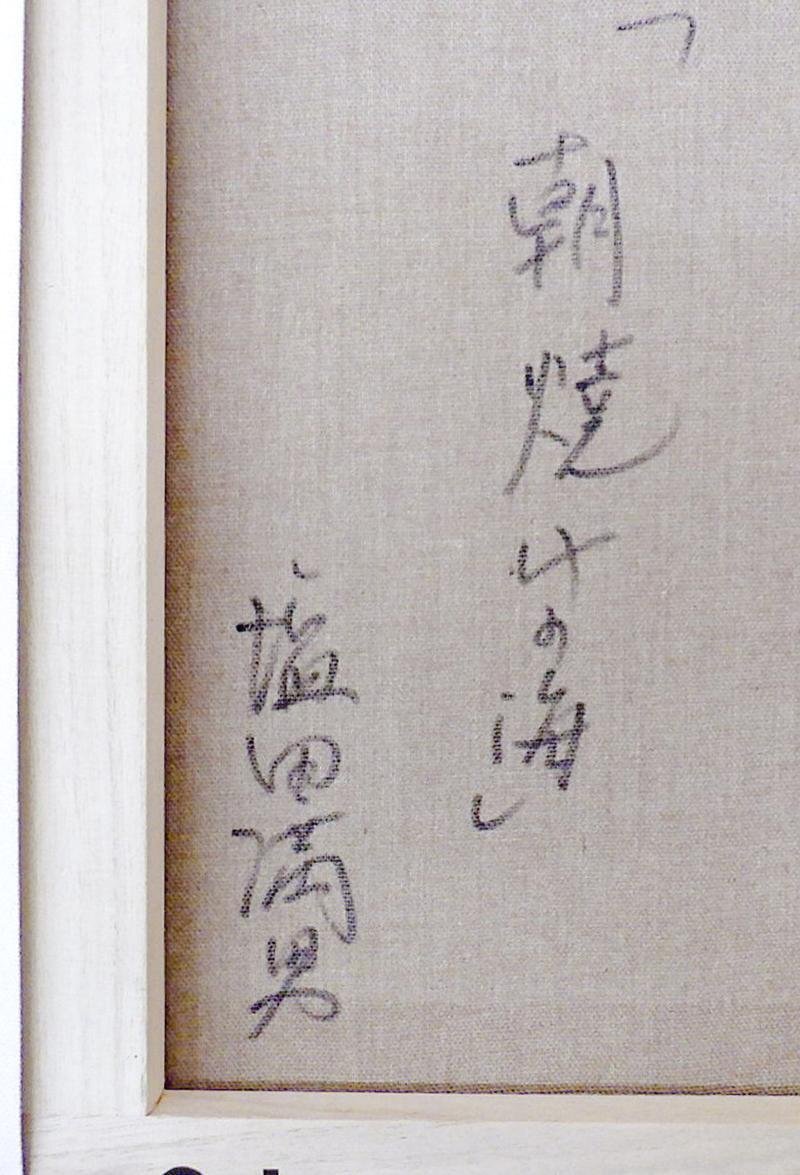 「朝焼けの海」
塩田満男